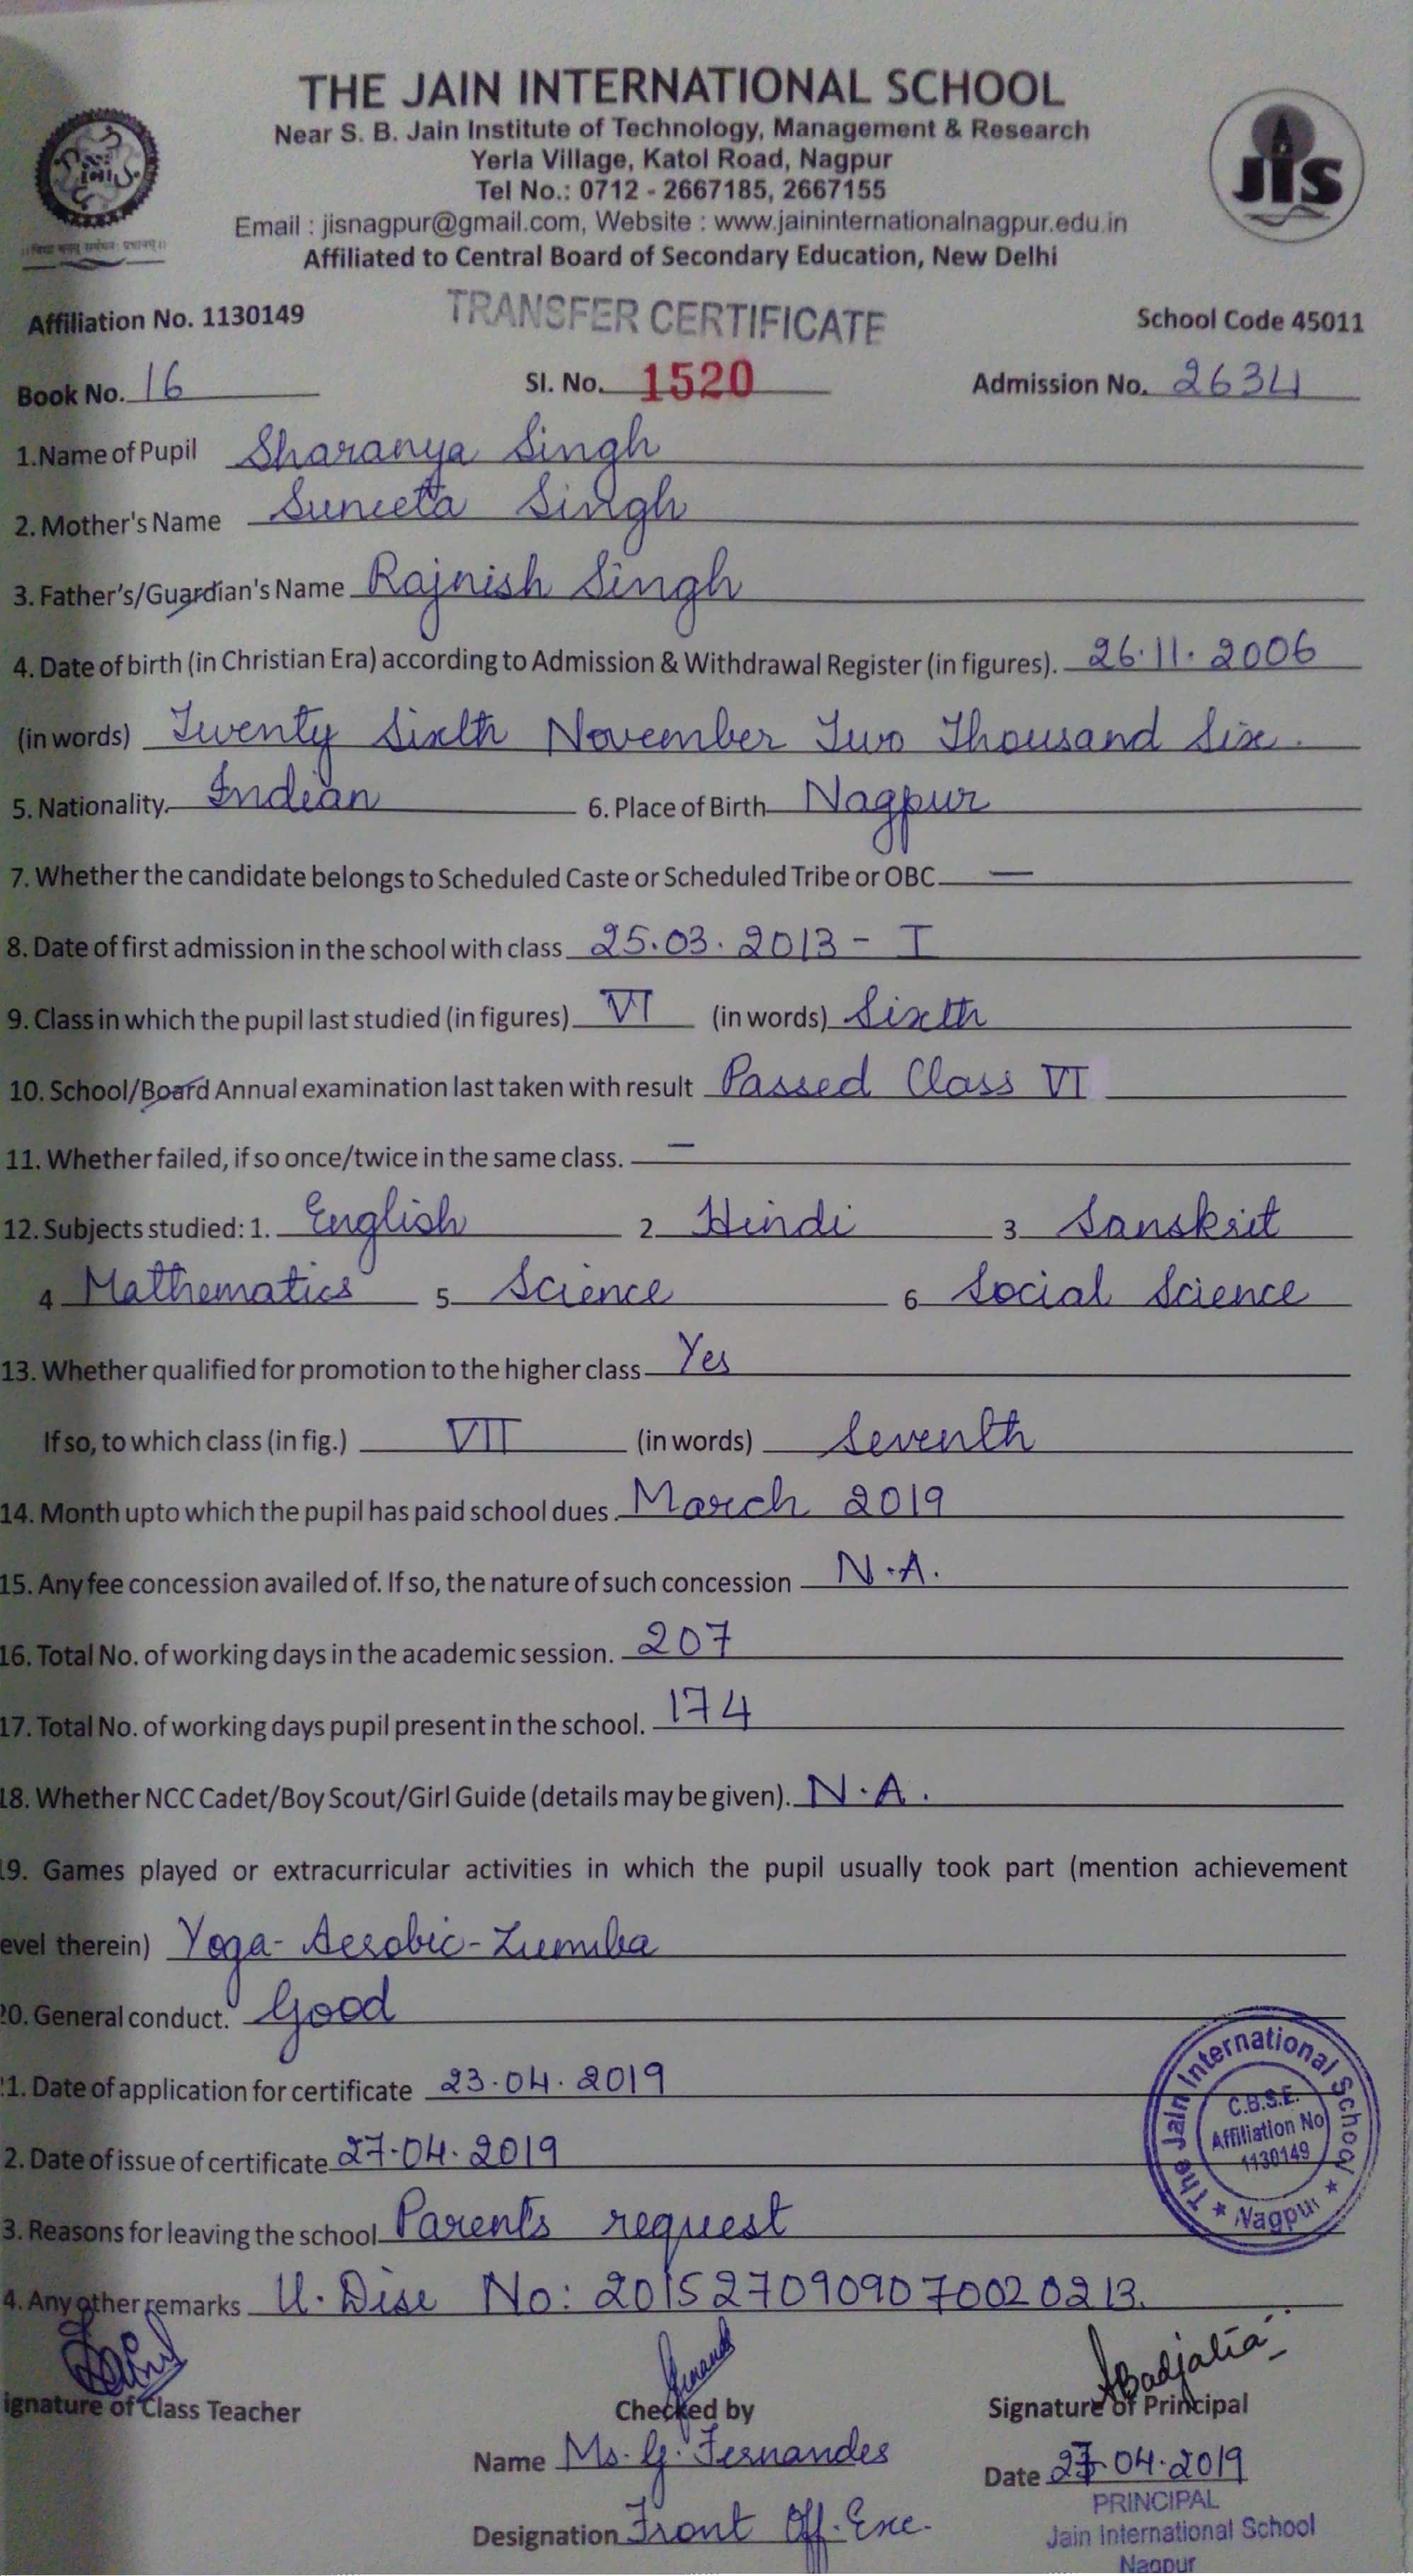 THE JAIN INTERNATIONAL SCHOOL
Near S. B. Jain Institute of Technology, Management & Research
Yerla Village, Katol Road, Nagpur
Tel No.: 0712 - 2667185, 2667155
Email : jisnagpur@gmail.com, Website : www.jaininternationalnagpur.edu.in
Affiliated to Central Board of Secondary Education, New Delhi
JIS
Affiliation No. 1130149 TRANSFER CERTIFICATE School Code 45011
Book No. 16 Sl. No. 1520 Admission No. 2634
1.Name of Pupil Sharanya Singh
2. Mother's Name Suneeta Singh
3. Father's/Guardian's Name Rajnish Singh
4. Date of birth (in Christian Era) according to Admission & Withdrawal Register (in figures). 26.11.2006
(in words) Twenty Sixth November Two Thousand Six.
5. Nationality. Indian 6. Place of Birth Nagpur
7. Whether the candidate belongs to Scheduled Caste or Scheduled Tribe or OBC. —
8. Date of first admission in the school with class 25.03.2013 - I
9. Class in which the pupil last studied (in figures) VI (in words) Sixth
10. School/Board Annual examination last taken with result Passed Class VI
11. Whether failed, if so once/twice in the same class. —
12. Subjects studied: 1. English 2. Hindi 3 Sanskrit
4 Mathematics 5 Science 6 Social Science
13. Whether qualified for promotion to the higher class Yes
If so, to which class (in fig.) VII (in words) Seventh
14. Month upto which the pupil has paid school dues. March 2019
15. Any fee concession availed of. If so, the nature of such concession N.A.
16. Total No. of working days in the academic session. 207
17. Total No. of working days pupil present in the school. 174
18. Whether NCC Cadet/Boy Scout/Girl Guide (details may be given). N.A.
19. Games played or extracurricular activities in which the pupil usually took part (mention achievement
evel therein) Yoga - Aerobic - Zumba
20. General conduct. Good
1. Date of application for certificate 23.04.2019
2. Date of issue of certificate 27.04.2019
3. Reasons for leaving the school Parent's request
4. Any other remarks U. Dise No: 2015270909070020213.
The Jain International School
C.B.S.E.
Affiliation No
1130149
Nagpur
Badjatia
ignature of Class Teacher Checked by Signature of Principal
Name Ms. G. Fernandes Date 27.04.2019
Designation Front Off. Exe.
PRINCIPAL
Jain International School
Nagpur